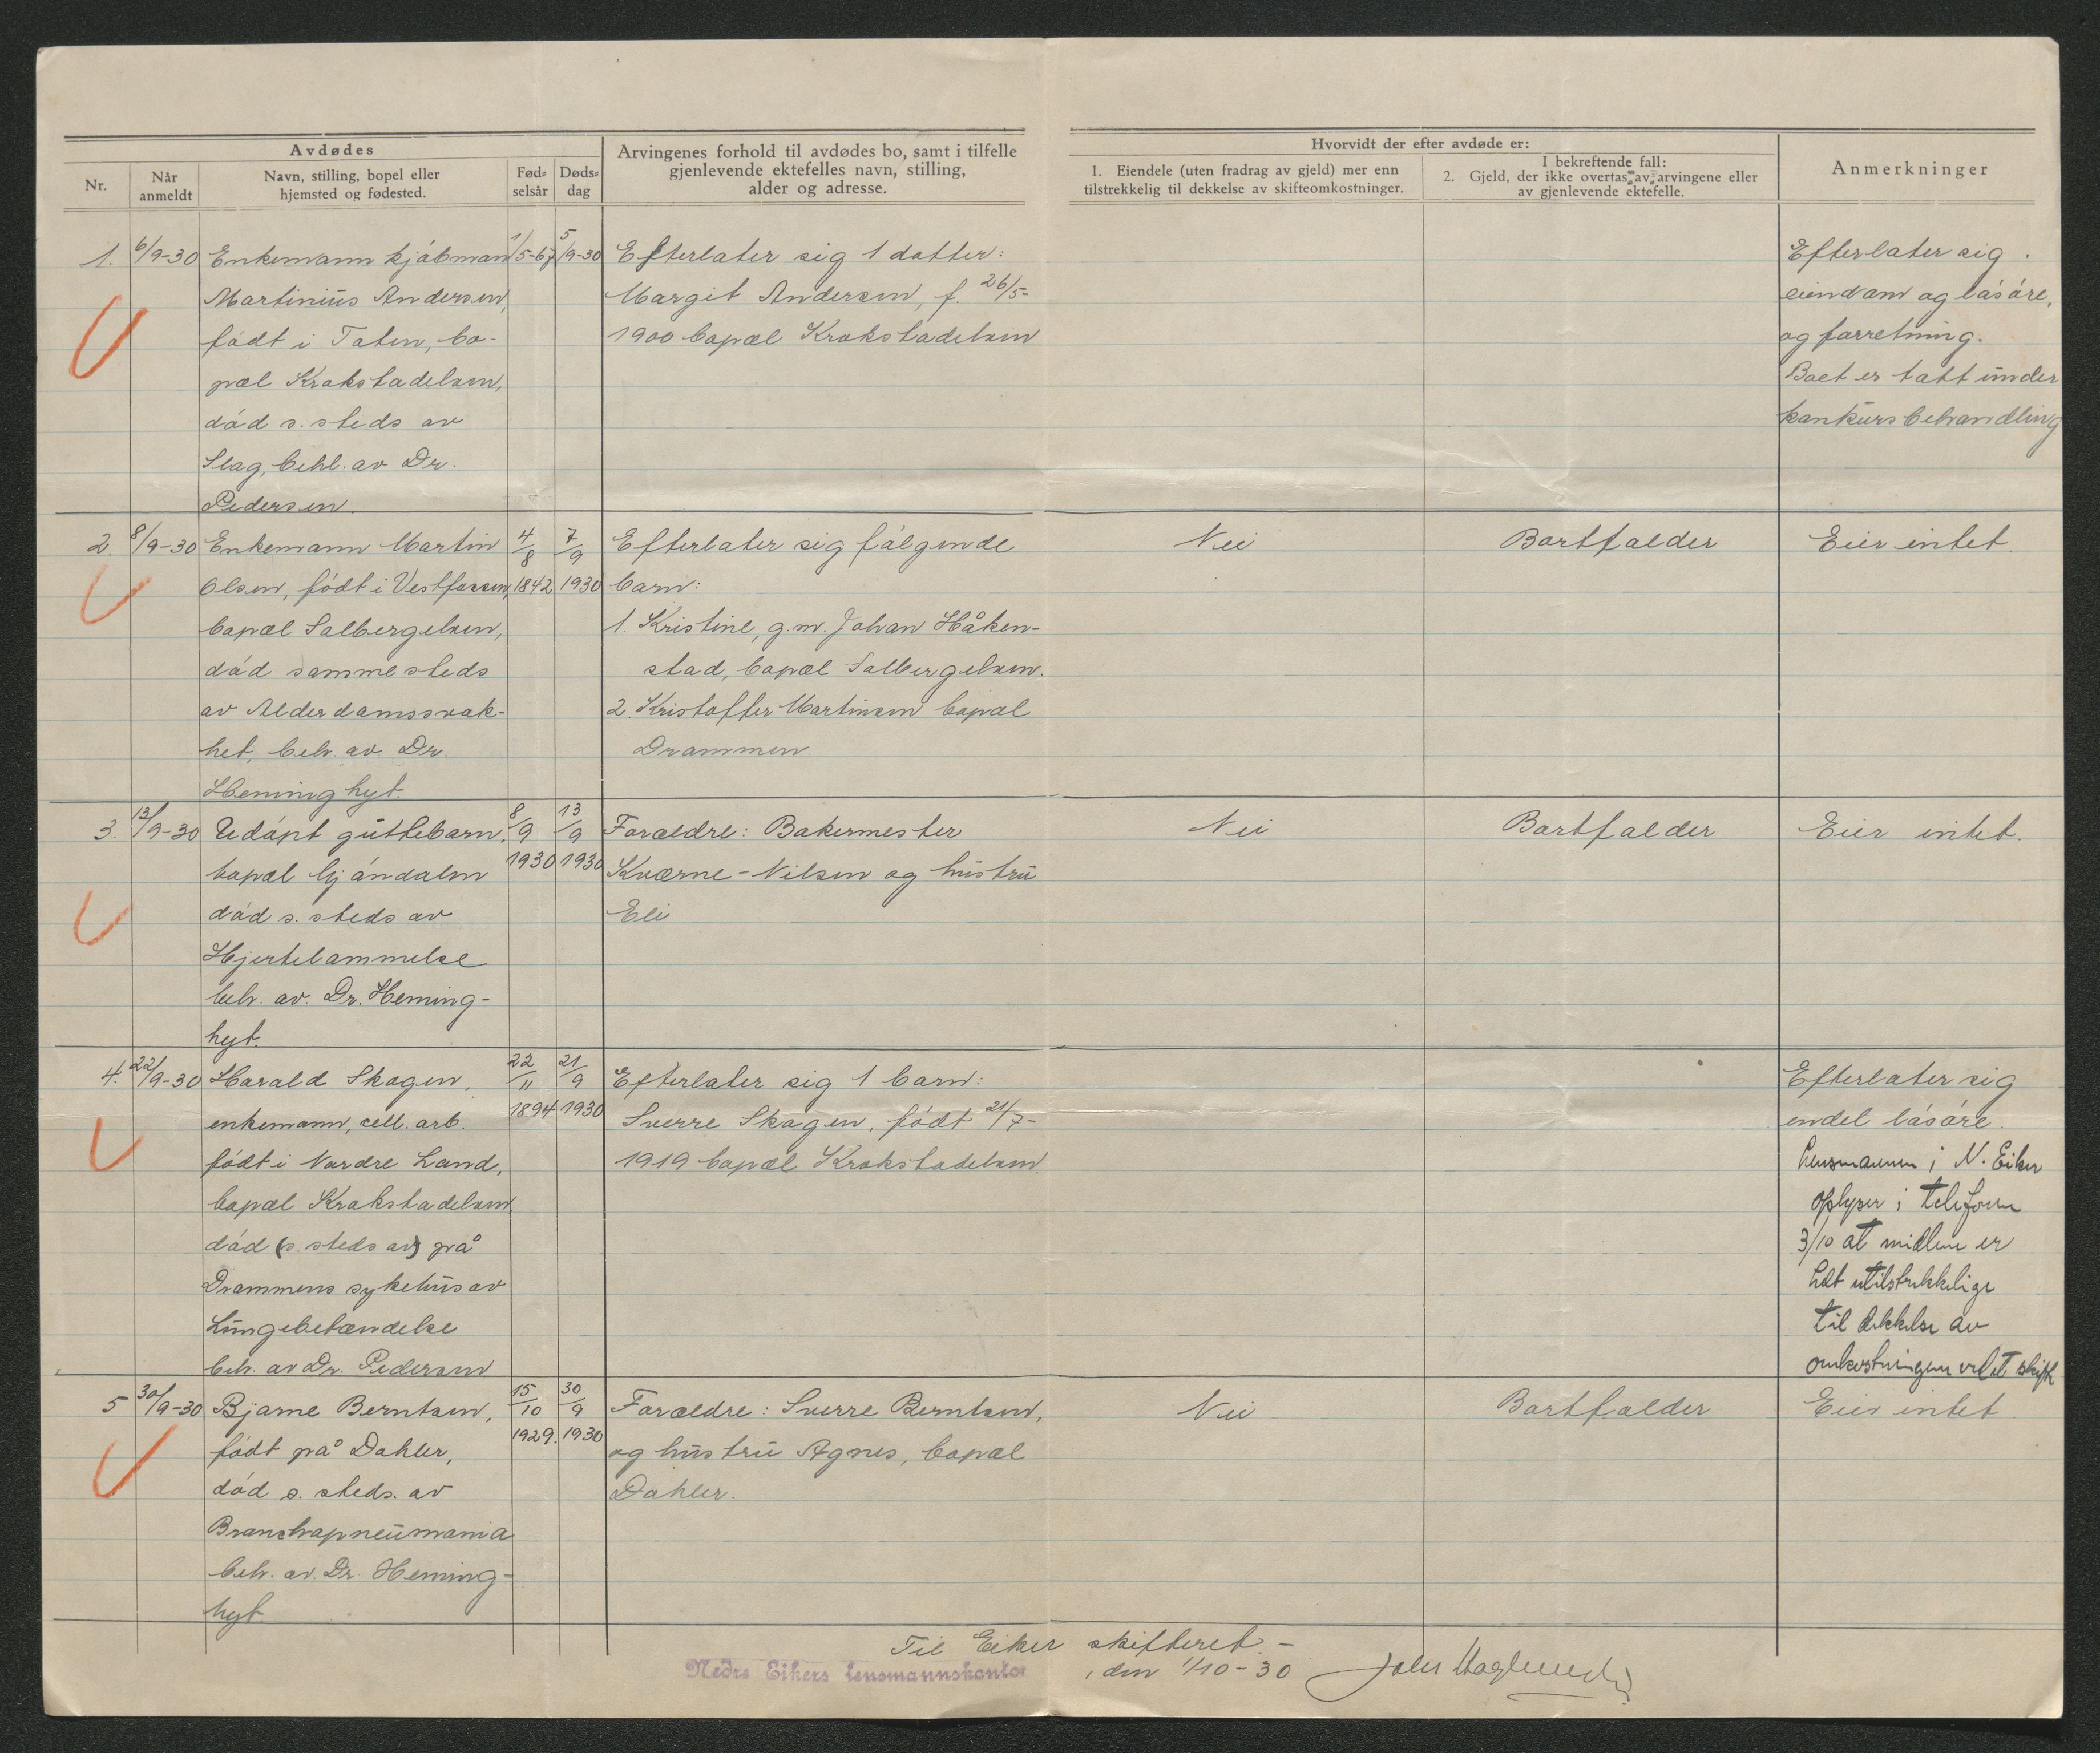 Avdødes
Arvingenes forhold til avdødes bo, samt i tilfelle
gjenlevende ektefelles navn, stilling,
alder og adresse.
Hvorvidt der efter avdøde er:
Anmerkninger
Nr.
Når
anmeldt
Navn, stilling, bopel eller
hjemsted og fødested.
Fød-
selsår
Døds-
dag
1. Eiendele (uten fradrag av gjeld) mer enn
tilstrekkelig til dekkelse av skifteomkostninger.
I bekreftende fall:
2. Gjeld, der ikke overtas av arvingene eller
av gjenlevende ektefelle.
1.
6/9-30
Enkemann kjøbmann
Martinius Andersen,
født i Toten, bo-
pæl Krokstadelven,
død s. steds av
Slag, behl. av Dr.
Pedersen.
1/5-67
5/9-30
Efterlater sig 1 datter:
Margit Andersen, f. 26/5-
1900 bopæl Krokstadelven
Efterlater sig
eiendom og løsøre,
og forretning.
Boet er tatt under
konkursbehandling
2.
8/9-30
Enkemann Martin
Olsen, født i Vestfossen,
bopæl Solbergelven,
død samme steds
av Alderdomssvak-
het, beh. av. Dr.
Heminghyt.
4/8
1842
7/9
1930
Efterlater sig følgende
barn:
1. Kristine, g.m. Johan Håken-
stad, bopæl Solbergelven.
2. Kristoffer Martinsen bopæl
Drammen.
Nei
Bortfalder
Eier intet.
3.
13/9-30
Udøpt guttebarn,
bopæl Mjøndalen
død s. steds av
Hjertelammelse
beh. av. Dr. Heming-
hyt.
8/9
1930
13/9
1930
Forældre: Bakermester
Kværne-Nilsen og hustru
Eli
Nei
Bortfalder
Eier intet.
4.
22/9-30
Harald Skogen,
enkemann, cell. arb.
født i Nordre Land,
bopæl Krokstadelven
død (s. steds av) på
Drammens sykehus av
Lungebetændelse
beh. av Dr. Pedersen
22/11
1894
21/9
1930
Efterlater sig 1 barn:
Sverre Skogen, født 21/7-
1919 bopæl Krokstadelven.
Efterlater sig
endel løsøre.
Lensmannen i N. Eiker
oplyser i telefon
3/10 at midlene er
helt utilstrekkelige
til dekkelse av
omkostningene ved et skifte
5
30/9-30
Bjarne Berntsen,
født på Dahler,
død s. steds. av
Bronchopneumonia
beh. av. Dr. Heming-
hyt.
15/10
1929.
30/9
1930
Forældre: Sverre Berntsen,
og hustru Agnes, bopæl
Dahler.
Nei
Bortfalder
Eier intet
Til Eiker skifteret.-
Nedre Eikers lensmannskontor, den 1/10-30